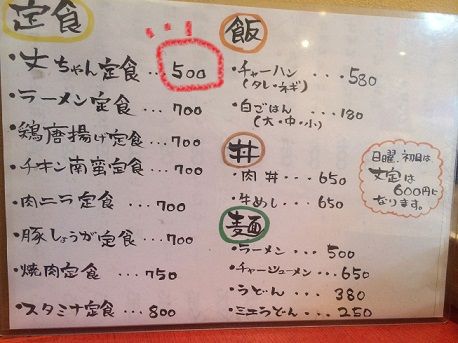 定食
・丈ちゃん定食…500
・ラーメン定食…700
・鶏唐揚げ定食…700
・チキン南蛮定食…700
・肉ニラ定食…700
・豚しょうが定食…700
・焼肉定食…750
・スタミナ定食…800
飯
・チャーハン…580
(タレ・ネギ)
・白ごはん…180
(大・中・小)
丼
・肉丼…650
・牛めし…650
麺
・ラーメン…500
・チャーシューメン…650
・うどん…380
・ミニうどん…250
日曜、初日は
丈定は
600円に
なります。